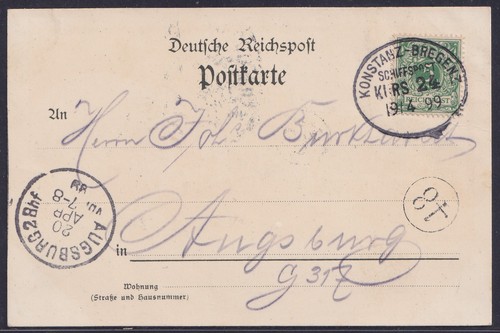 Deutsche Reichspost
Postkarte
KONSTANZ-BREGENZ
SCHIFFSPOST
KURS 24
19/4 99
An
Herrn Joh. Burkhardt
in Augsburg
G 317
Wohnung
(Straße und Hausnummer)
AUGSBURG 2 Bhf
20
APR
7-8